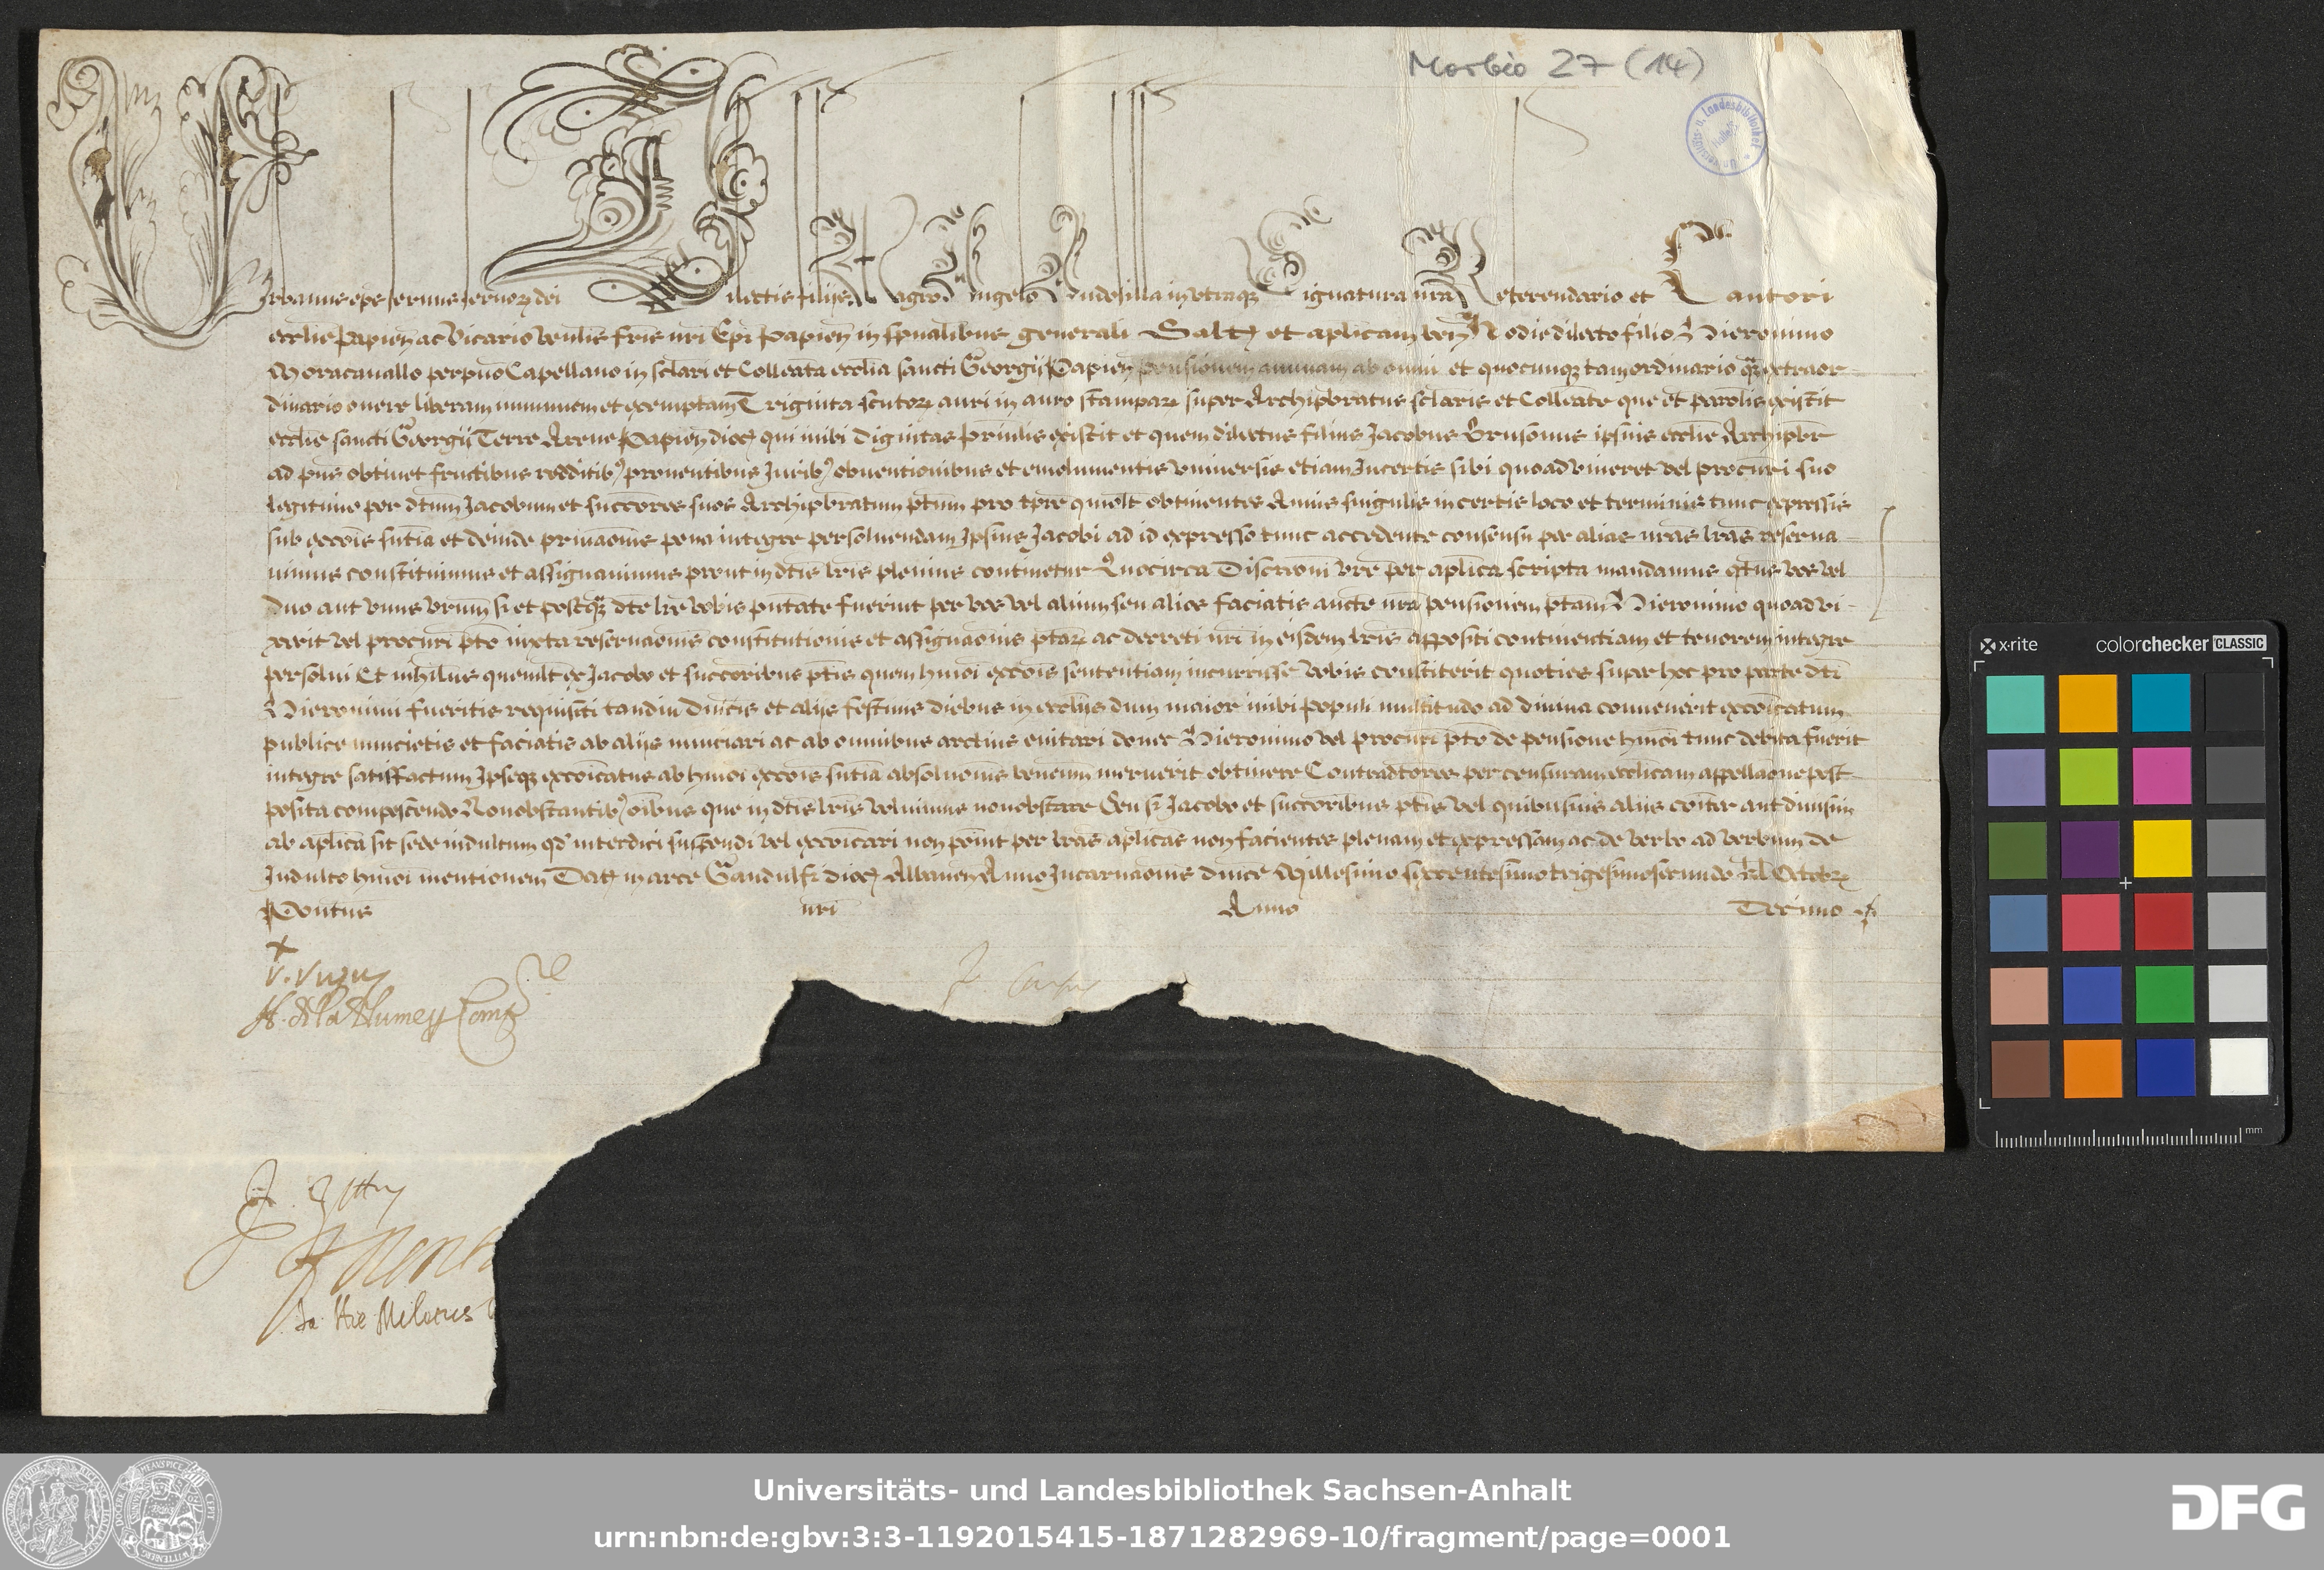 Morbio 27 (14)
Universitäts- u. Landesbibliothek
Halle/S
Urbanus eps servus servorz dei Dilectis filijs Magro Angelo in utraqz Signatura nra Referendario et Cantori
ecclie Papien ac Vicario venlis fris nri Epi Papien in spualibus generali Saltz et aplicam ben Hodie dilecto filio Hieronimo
Moracavallo perpuo Capellano in sclari et Colleata ecclia sancti Georgij Papien pensionem annuam ab omni et quocunqz tam ordinario qz extraor-
dinario onere liberam immunem et exemptam Triginta scutorz auri in auro stamparz super Archipbratus sclaris et Colleate que et parolis existit
ecclie sancti Georgij Terre Arene Papien dioc qui inibi dignitas prinlis existit et quem dilectus filius Jacobus Brusonus ipsius ecclie Archipbr
ad pns obtinet fructibus redditib proventibus Jurib obventionibus et emolumentis universis etiam Incertis sibi quoad viveret vel procuri suo
legitimo per dtum Jacobum et succores suos Archipbratum ptum pro tpre quolt obtinentes Annis singulis in certis loco et terminis tunc expressis
sub excois sutia et deinde privaonis pena integre persolvendam Ipsius Jacobi ad id expresso tunc accedente consensu per alias nras lras reserva-
vimus constituimus et assignavimus prout in dtis lris plenius continetur Quocirca Discretioni vre per aplica scripta mandamus qtus vos vel
duo aut unus vrum si et postqz dte lre vobis pntate fuerint per vos vel alium seu alios faciatis aucte nra pensionem ptam Hieronimo quoad vi-
xerit vel procuri pto iuxta reservaonis constitutionis et assignaonis ptarz ac decreti nri in eisdem lris appositi continentiam et tenorem integre
persolvi Et nihilus quemlt ex Jacobo et succoribus ptis quem hmoi excois sententiam incurrisse vobis constiterit quoties super hoc pro parte dti
Hieronimi fueritis requisiti tandiu dnicis et alijs festivis diebus in ecclijs dum maior inibi populi multitudo ad divina convenerit excoicatum
publice nuncietis et faciatis ab alijs nunciari ac ab omnibus arctius evitari donec Hieronimo vel procuri pto de pensione hmoi tunc debita fuerit
integre satisfactum Ipseqz excoicatus ab hmoi excois sutia absolvonis beneum meruerit obtinere Contradtores per censuram ecclicam appellaone post-
posita compescendo Nonobstantib oibus que in dtis lris volvimus nonobstare Seu si Jacobo et succoribus ptis vel quibusvis alijs coiter aut divisim
ab aplica sit sede indultum qd interdici suspendi vel excoicari non point per lras aplicas non facientes plenam et expressam ac de verbo ad verbum de
Indulto hmoi mentionem Datz in arce Gandulfi dioc Albanen Anno Incarnaonis dnice Millesimo sexcentesimo trigesimosecundo kl Octobrz
Pontus nri Anno Decimo
x-rite colorchecker CLASSIC
mm
Universitäts- und Landesbibliothek Sachsen-Anhalt
urn:nbn:de:gbv:3:3-1192015415-1871282969-10/fragment/page=0001
DFG